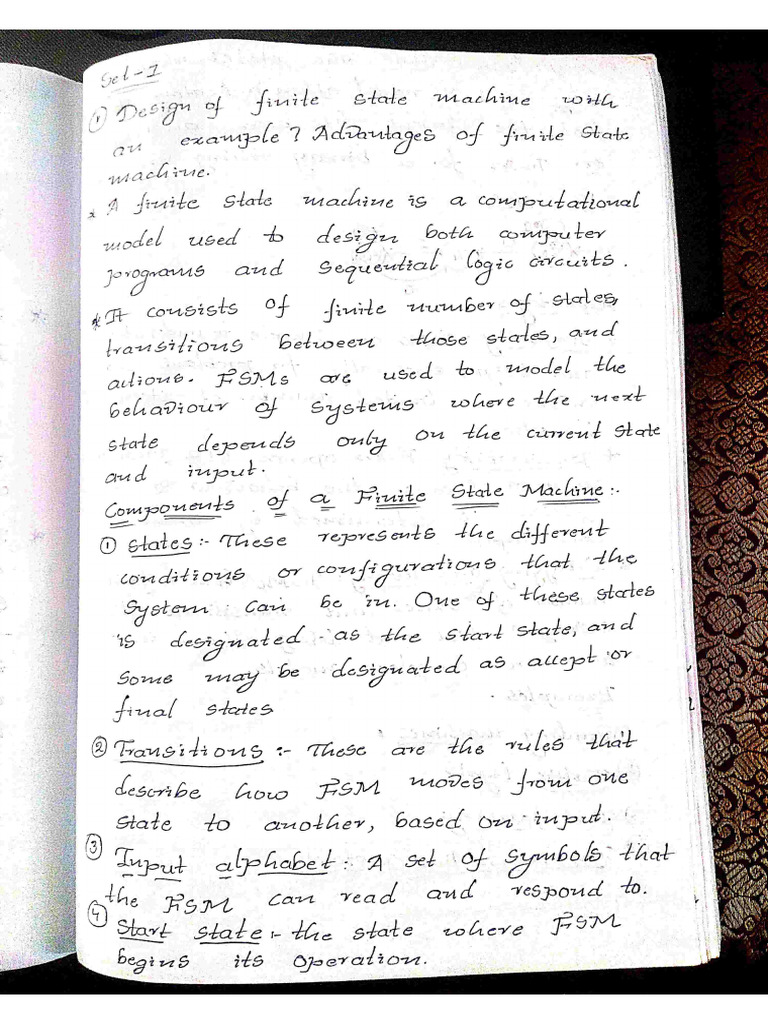 Set-1
① Design of finite state machine with
an example? Advantages of finite state
machine.
* A finite state machine is a computational
model used to design both computer
programs and sequential logic circuits.
* It consists of finite number of states,
transitions between those states, and
actions. FSMs are used to model the
behaviour of systems where the next
state depends only on the current state
and input.
Components of a Finite State Machine:-
① States:- These represents the different
conditions or configurations that the
system can be in. One of these states
is designated as the start state, and
some may be designated as accept or
final states
② Transitions:- These are the rules that
describe how FSM moves from one
state to another, based on input.
③ Input alphabet: A set of symbols that
the FSM can read and respond to.
④ Start state:- the state where FSM
begins its operation.